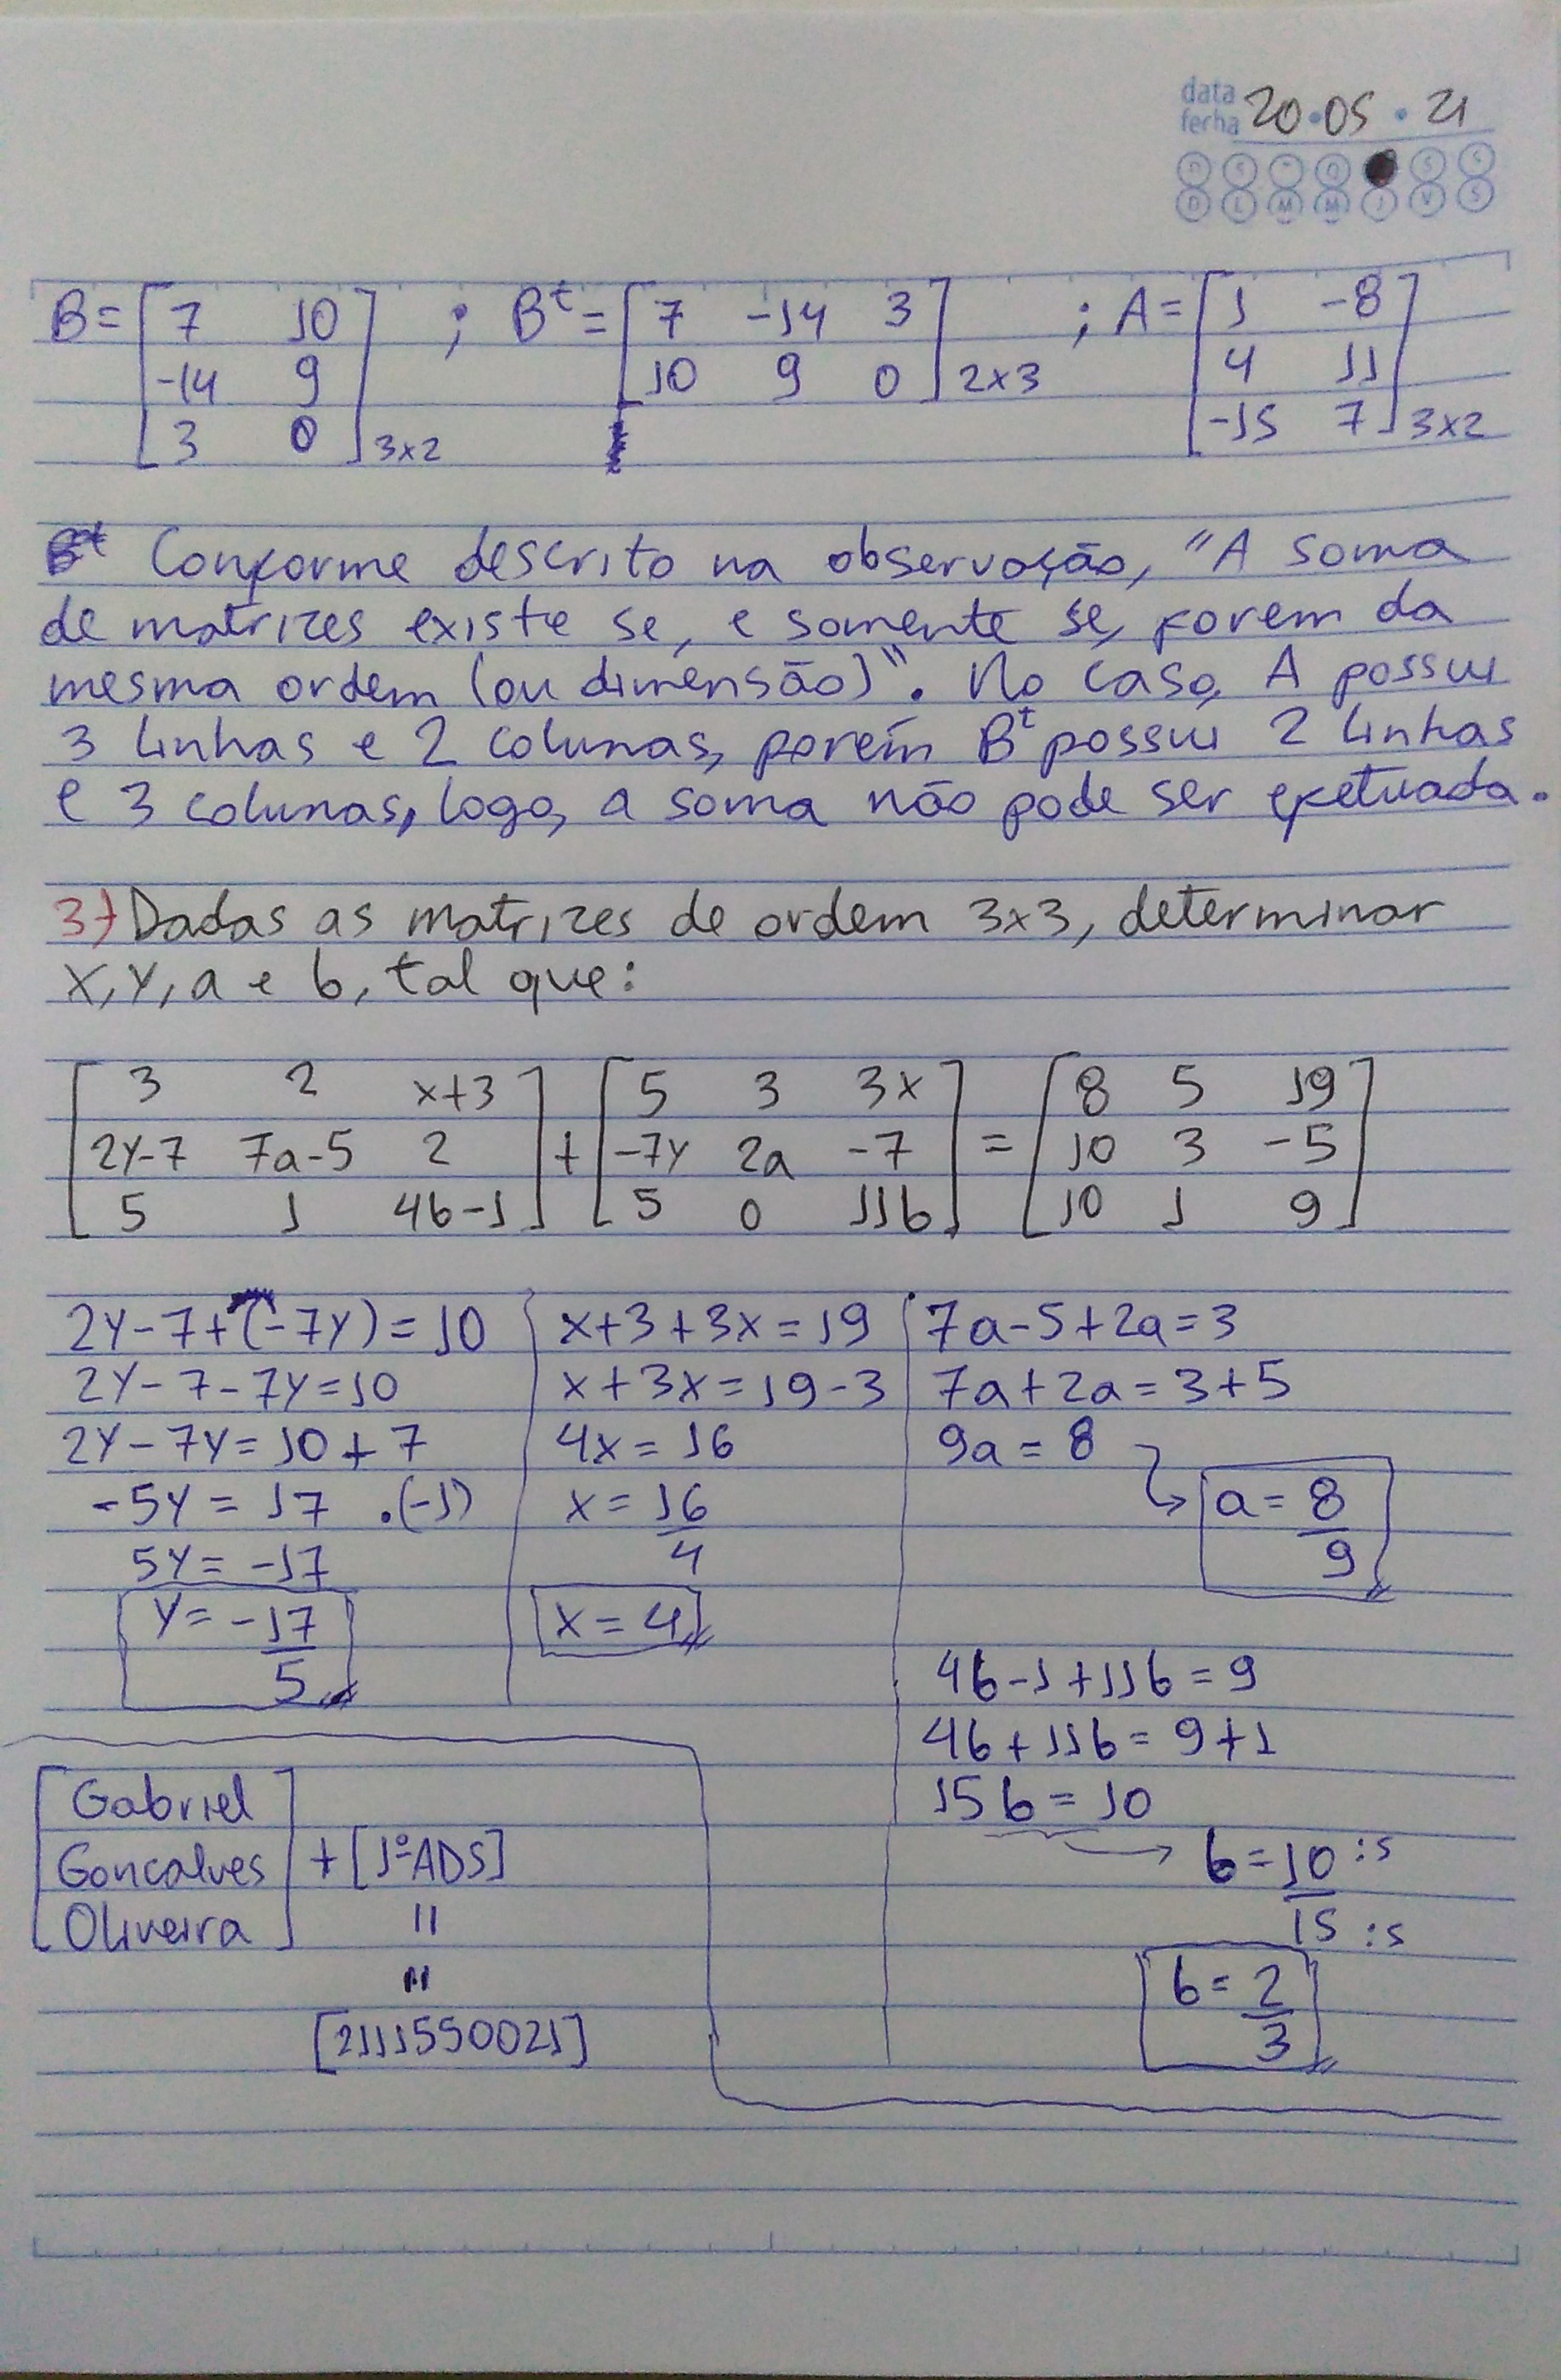 data
fecha 20.05.21
D S Q S S
D L M M J V S
B = [7 10; -14 9; 3 0] 3x2 ; Bᵗ = [7 -14 3; 10 9 0] 2x3 ; A = [1 -8; 4 11; -15 7] 3x2
Conforme descrito na observação, "A soma
de matrizes existe se, e somente se, forem da
mesma ordem (ou dimensão)". No caso, A possui
3 linhas e 2 colunas, porém Bᵗ possui 2 linhas
e 3 colunas, logo, a soma não pode ser efetuada.
3) Dadas as matrizes de ordem 3x3, determinar
x, y, a e b, tal que:
[3 2 x+3; 2y-7 7a-5 2; 5 1 4b-1] + [5 3 3x; -7y 2a -7; 5 0 11b] = [8 5 19; 10 3 -5; 10 1 9]
2y-7+(-7y)=10
2y-7-7y=10
2y-7y=10+7
-5y=17 .(-1)
5y=-17
y=-17/5
x+3+3x=19
x+3x=19-3
4x=16
x=16/4
x=4
7a-5+2a=3
7a+2a=3+5
9a=8
a=8/9
4b-1+11b=9
4b+11b=9+1
15b=10
b=10/15 :5 :5
b=2/3
[Gabriel
Goncalves
Oliveira] + [1º ADS]
=
=
[2111550021]